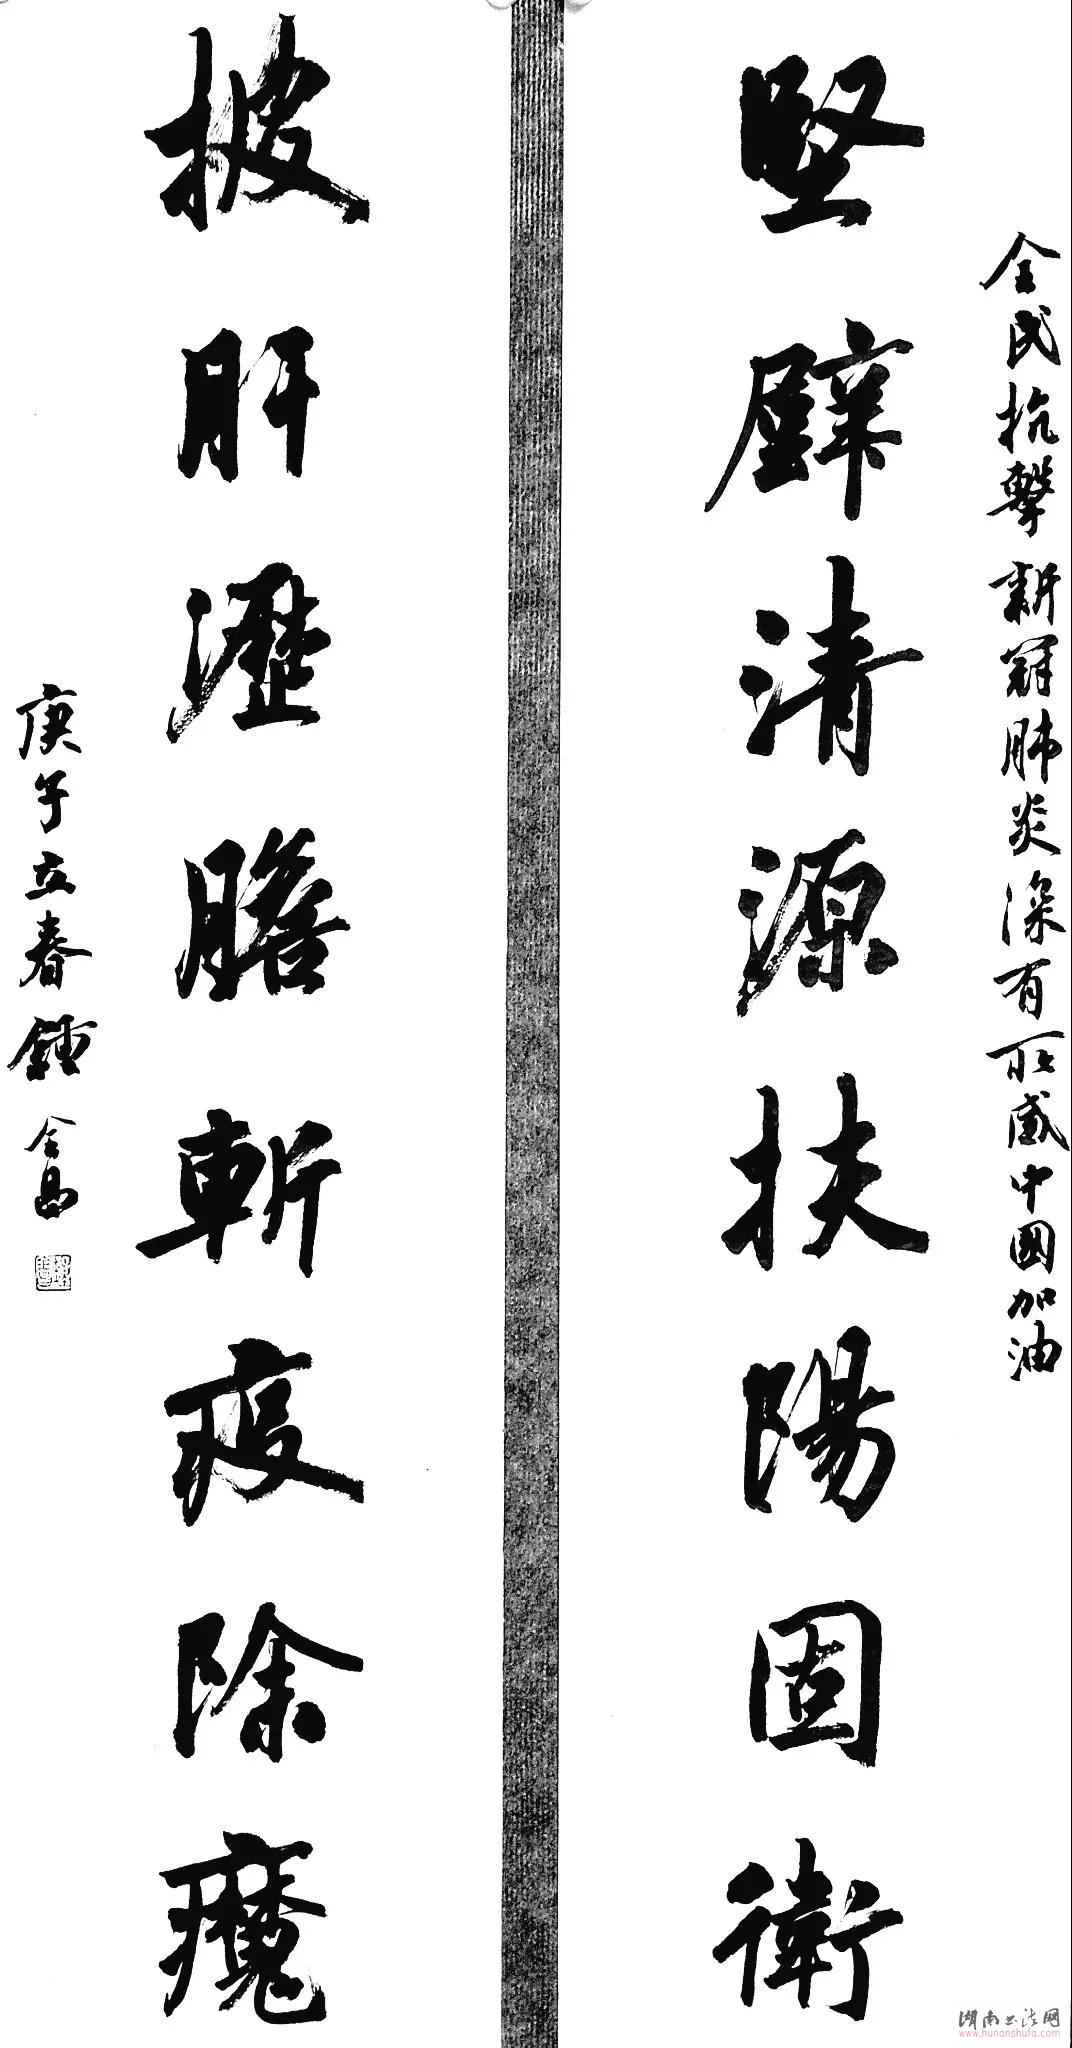 全民抗擊新冠肺炎深有所感中國加油
堅壁清源扶陽固衛
披肝瀝膽斬疫除魔
庚子立春鍾
湖南书法网
www.hunanshufa.com